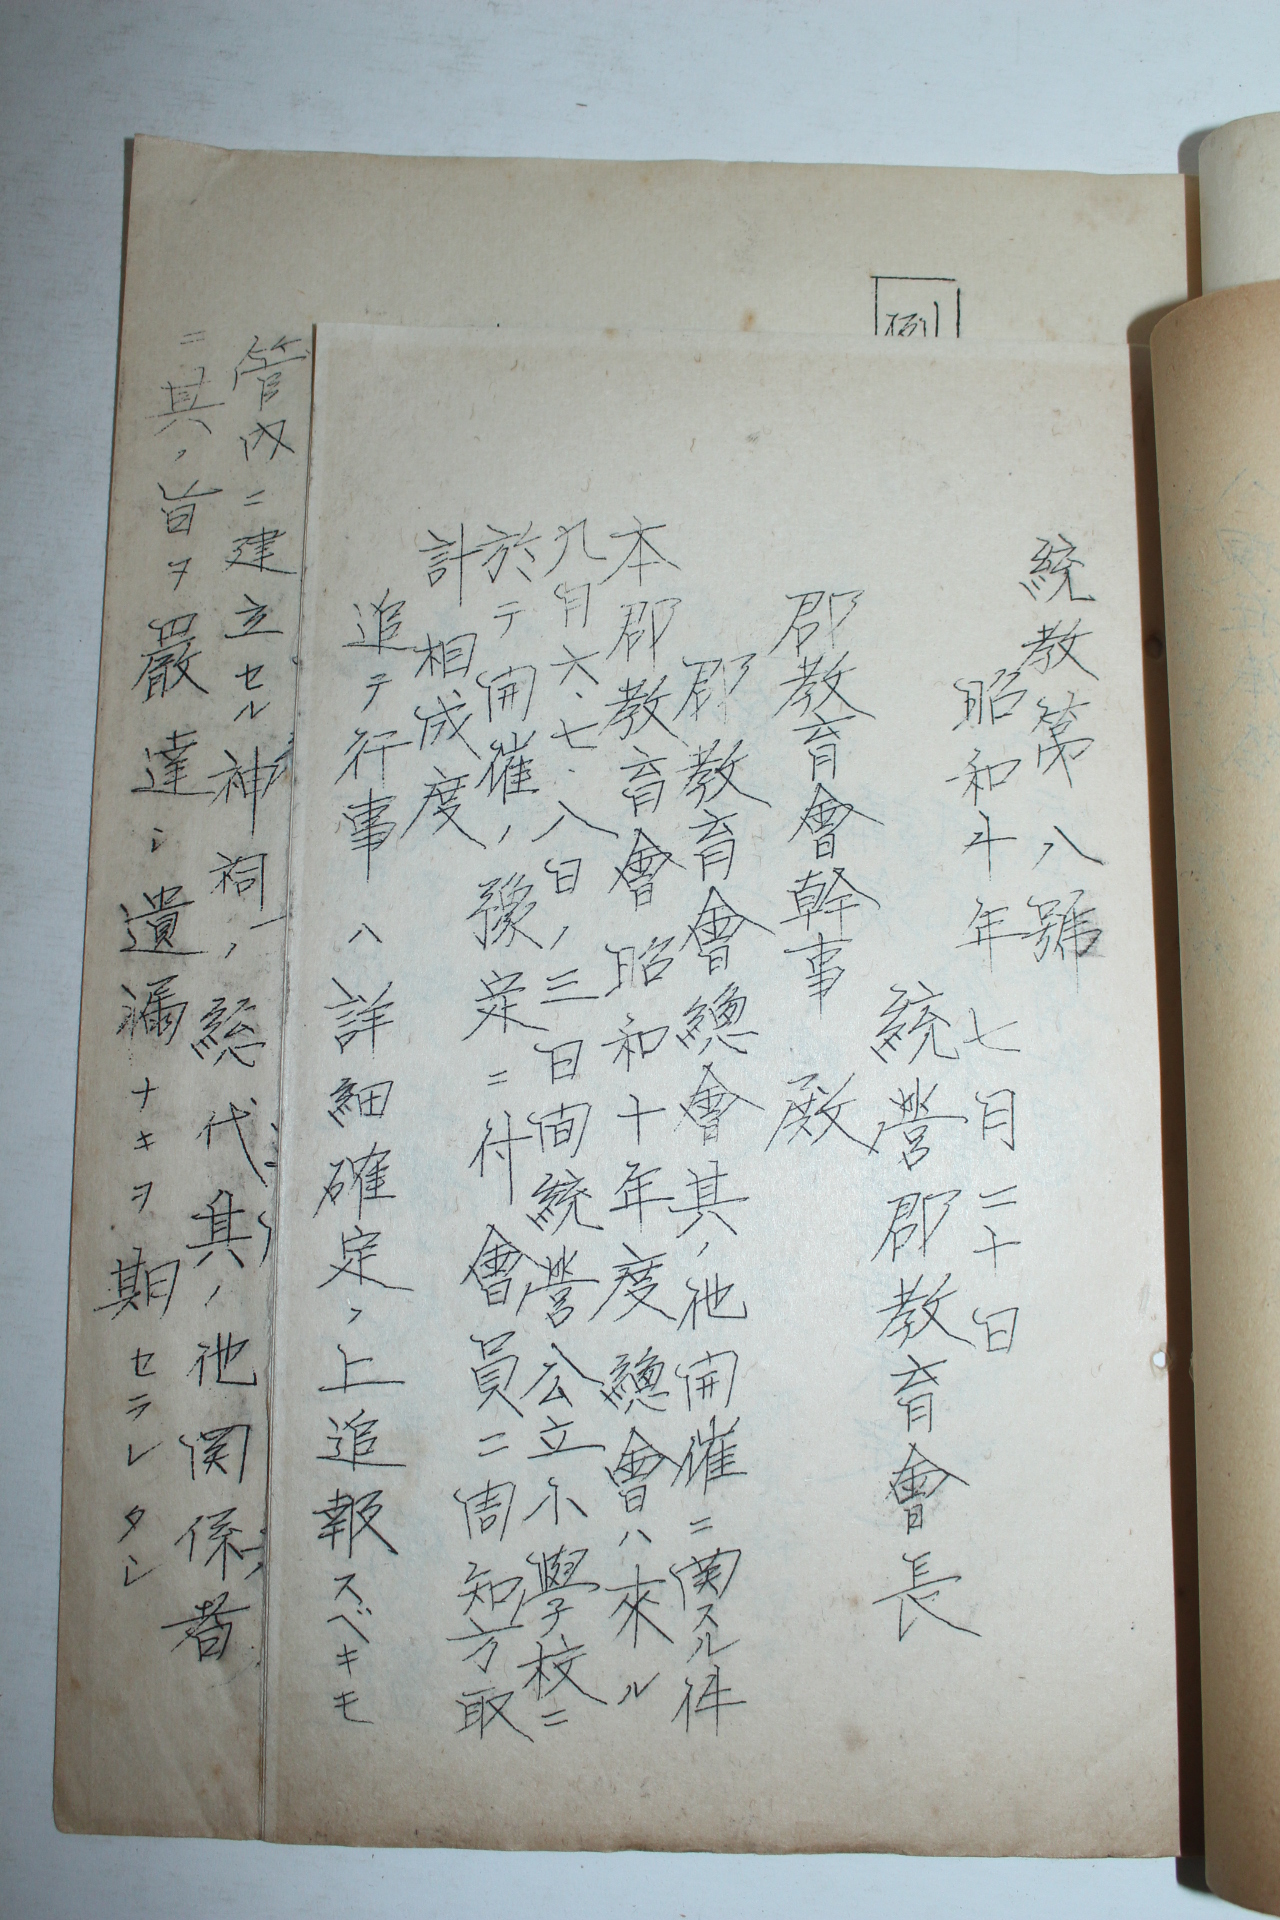 統教第八號
昭和十年七月二十日
統營郡教育會長
郡教育會幹事殿
郡教育會總會其ノ他開催ニ関スル件
本郡教育會昭和十年度總會ハ來ル
九月六、七、八日ノ三日间統營公立小學校ニ
於テ開催ノ豫定ニ付會員ニ周知方取
計相成度
追テ行事ハ詳細確定ノ上追報スベキモ
管内ニ建立セル神祠ノ総代其ノ他関係者
ニ其ノ旨ヲ嚴達シ遺漏ナキヲ期セラレタシ